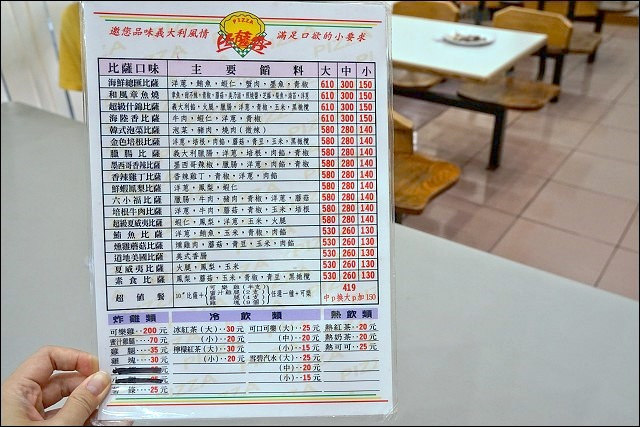 邀您品味義大利風情 PIZZA 滿足口欲的小要求
比薩口味 主要餡料 大 中 小
海鮮總匯比薩 洋蔥,鮪魚,蝦仁,蟹肉,墨魚,青椒 610 300 150
和風章魚燒 610 300 150
超級什錦比薩 義大利餡,火腿,臘腸,洋蔥,青椒,玉米,蘑菇 610 300 150
海陸香比薩 牛肉,蝦仁,洋蔥,青椒 610 300 150
韓式泡菜比薩 泡菜,豬肉,燒肉(微辣) 580 280 140
金色培根比薩 洋蔥,培根,肉餡,蘑菇,青豆,玉米,黑橄欖 580 280 140
臘腸比薩 義大利臘腸,洋蔥,青椒,肉餡 580 280 140
墨西哥香辣比薩 墨西哥辣椒,臘腸,洋蔥,青椒,肉餡 580 280 140
香辣雞丁比薩 香辣雞丁,青椒,洋蔥,肉餡 580 280 140
鮮蝦鳳梨比薩 洋蔥,鳳梨,蝦仁 580 280 140
六小福比薩 臘腸,牛肉,豬肉,青椒,洋蔥,蘑菇 580 280 140
培根牛肉比薩 洋蔥,牛肉,蘑菇,青椒,玉米,培根 580 280 140
超級夏威夷比薩 蝦仁,鳳梨,洋蔥,玉米,火腿 580 280 140
鮪魚比薩 洋蔥,鮪魚,玉米,青椒,肉餡 530 260 130
燻雞蘑菇比薩 燻雞肉,蘑菇,青豆,玉米,肉餡 530 260 130
道地美國比薩 美式香腸 530 260 130
夏威夷比薩 火腿,鳳梨,玉米 530 260 130
素食比薩 鳳梨,蘑菇,玉米,青椒,青豆,黑橄欖 530 260 130
超值餐 10"比薩+ 任選一種+可樂 419
中p換大p加150
炸雞類 冷飲類 熱飲類
可樂雞‥200元 冰紅茶(大)‥30元 可口可樂(大)‥25元 熱紅茶‥20元
蜜汁雞腿‥70元 (小)‥20元 (中)‥20元 熱奶茶‥20元
雞腿‥35元 檸檬紅茶(大)‥30元 (小)‥15元 熱可可‥25元
雞塊‥30元 (小)‥20元 雪碧汽水(大)‥25元
(中)‥20元
薯條‥25元 (小)‥15元